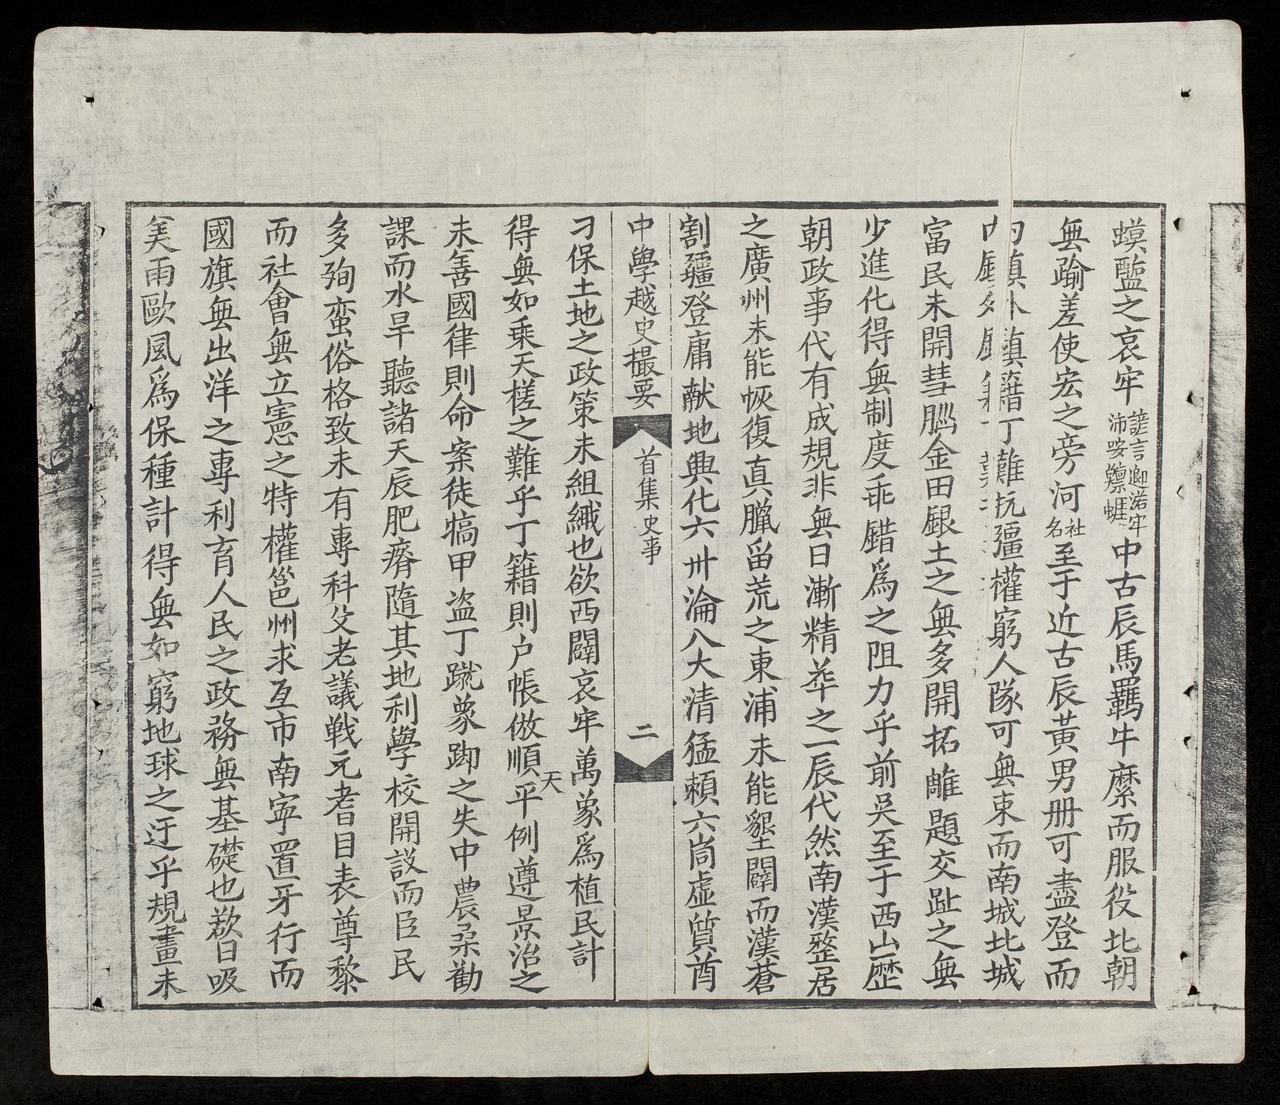 蟆盬之哀牢諺言卿渃牢沛咹𪉥𤷱中古辰馬羈牛縻而服役北朝
無踰差使宏之旁河社名至于近古辰黃男册可盡登而
內鎮外鎮籍丁難抗疆權窮人隊可無束而南城北城
富民未開彗腦金田銀土之無多開拓雕題交趾之無
少進化得無制度乖錯爲之阻力乎前吳至于西山歷
朝政事代有成規非無日漸精華之一辰代然南漢整居
之廣州未能恢復真臘留荒之東浦未能墾闢而漢蒼
割疆登庸献地興化六州淪入大清猛賴六峝虛質酋
中學越史撮要 首集史事 二
刁保土地之政策未組織也欲西闢哀牢萬象爲植民計
得無如乘天槎之難乎丁籍則户帳倣順天平例遵景治之
未善國律則命案徒犒甲盜丁蹴象踋之失中農桑勸
課而水旱聽諸天辰肥瘠隨其地利學校開設而臣民
多殉蛮俗格致未有專科父老議戦元耆目表尊黎
而社會無立憲之特權邕州求互市南寧置牙行而
國旗無出洋之專利育人民之政務無基礎也欲日吸
美雨歐風爲保種計得無如窮地球之迂乎規畫未